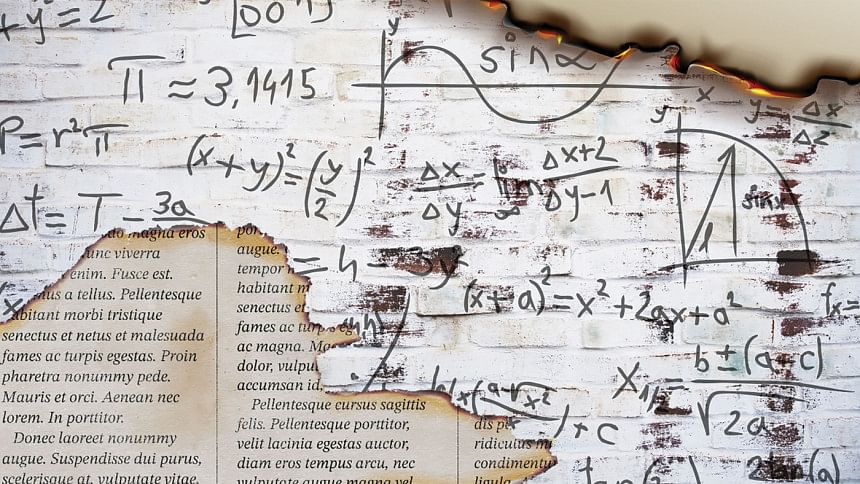 +y² = 2
[00
π ≈ 3,1415
y
sin α
x
P = r²π
(x+y)² = (y/2)²
Δx/Δy = lim ∞ Δx+2/Δy-1
y = Δx/Δ2
y
sin x
Δt = T - 3a
= h - 3y²
(x+a)² = x² + 2ax + a²
fx =
X1/2 = b ± (a+c) / √2a
) + c
tan(
2tan(a)
magna eros
unc viverra
enim. Fusce est.
mus a tellus. Pellentesque
abitant morbi tristique
senectus et netus et malesuada
fames ac turpis egestas. Proin
pharetra nonummy pede.
Mauris et orci. Aenean nec
lorem. In porttitor.
Donec laoreet nonummy
augue. Suspendisse dui purus,
scelerisque at, vulputate vitae,
por
augue.
tempor
habitant m
senectus et
fames ac turp
ac magna.
dolor, vulpu
accumsan id,
Pellentesque cursus sagittis
felis. Pellentesque porttitor,
velit lacinia egestas auctor,
diam eros tempus arcu, nec
vulputate augue magna vel
dis p
ridiculus m
condimentu
ligula